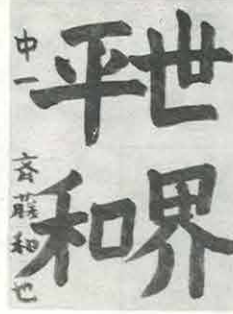 世界
平和
中一 斉藤和也